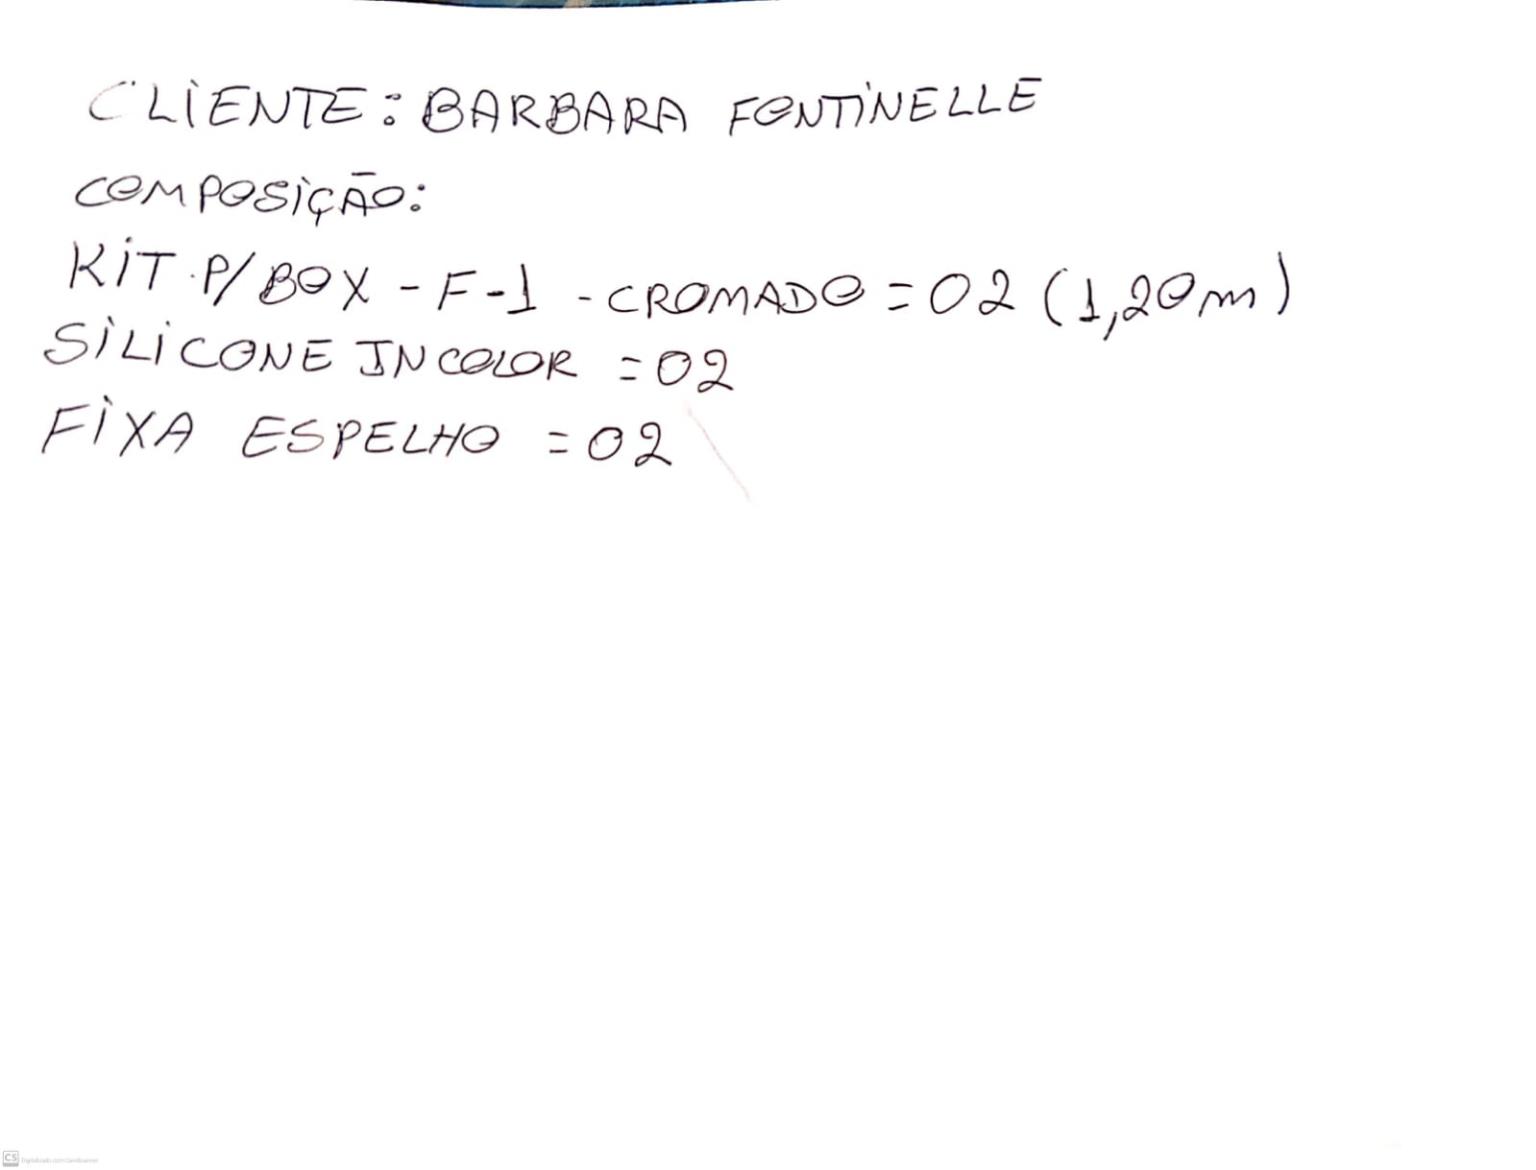 CLIENTE: BARBARA FONTINELLE
COMPOSIÇÃO:
KIT P/ BOX - F-1 - CROMADO = 02 (1,20m)
SILICONE INCOLOR = 02
FIXA ESPELHO = 02
CS Digitalizado com CamScanner